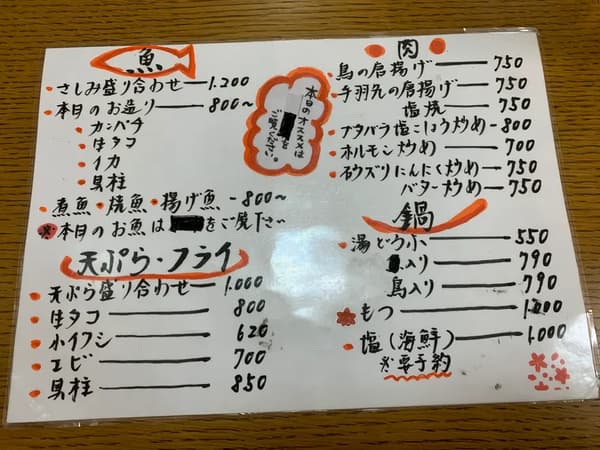 魚
・さしみ盛り合わせ―1.200
・本日のお造り―800~
カンパチ
ほタコ
イカ
貝柱
・煮魚・焼魚・揚げ魚-800~
※本日のお魚は をご覧下さい
天ぷら・フライ
・天ぷら盛り合わせ―1.000
・ほタコ―800
・小イワシ―620
・エビ―700
・貝柱―850
本日のオススメは
を
ご覧ください。
・肉・
・鳥の唐揚げ―750
・手羽先の唐揚げ―750
塩焼―750
・ブタバラ塩こしょう炒め-800
・ホルモン炒め―700
・砂ズリにんにく炒め―750
バター炒め―750
鍋
・湯どうふ―550
入り―790
鳥入り―790
もつ
・塩(海鮮)―1.000
※要予約